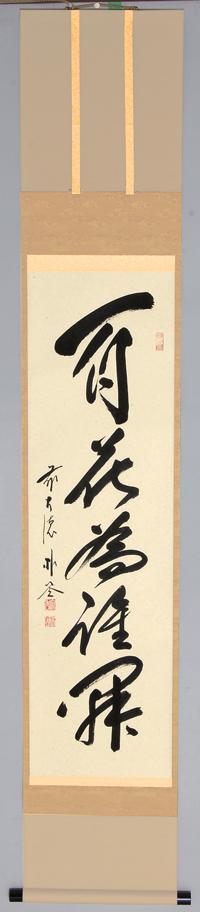 百花為誰開
前大徳